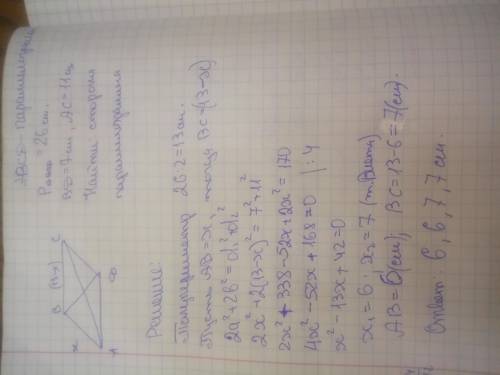 ABCD - параллелограмм
Pавсд = 26 см.
BD = 7 см, AC = 11 см
Найти стороны
параллелограмма
B (13-x) C
x
A D
Решение:
Полупериметр 26:2=13 см.
Пусть AB=x, тогда BC=(13-x)
2a²+2b²=d₁²+d₂²
2x²+2(13-x)²=7²+11²
2x²+338-52x+2x²=170
4x²-52x+168=0 |:4
x²-13x+42=0
x₁=6; x₂=7 (т. Виета)
AB=6(см); BC=13-6=7(см).
Ответ: 6, 6, 7, 7 см.